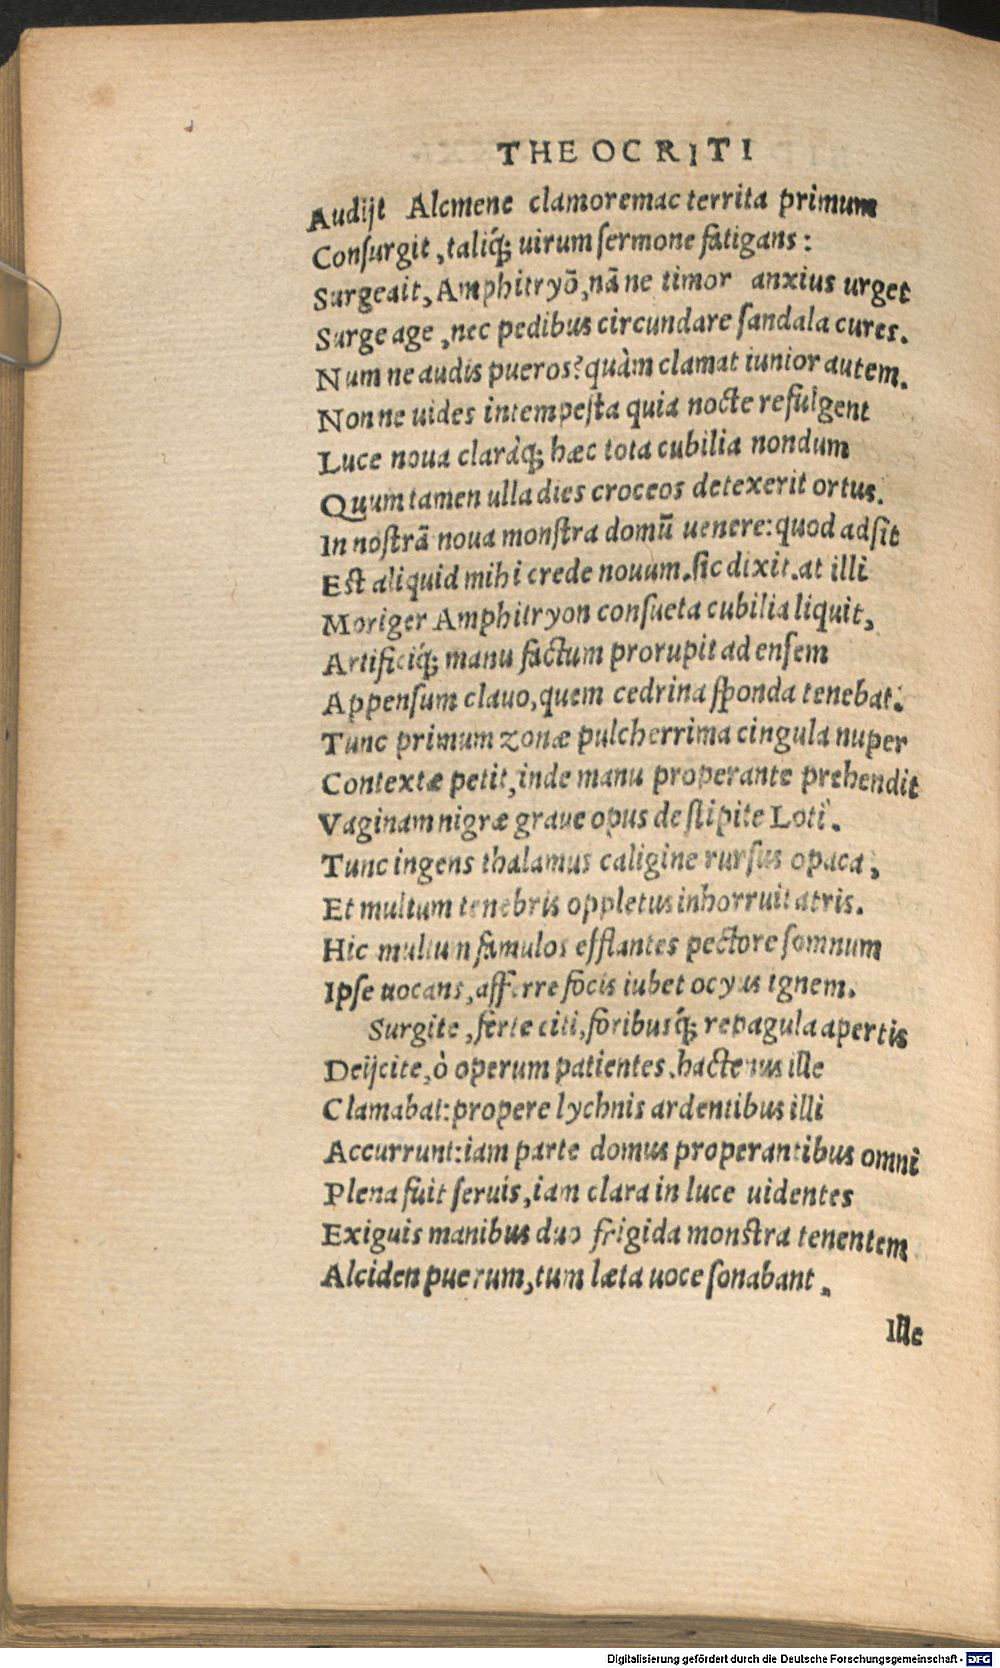 THEOCRITI
Audijt Alcmene clamoremac territa primum
Consurgit, taliq́; uirum sermone fatigans:
Surge ait, Amphitryō, nā ne timor anxius urget
Surge age, nec pedibus circundare sandala cures.
Num ne audis pueros? quàm clamat iunior autem.
Non ne uides intempesta quia nocte refulgent
Luce noua claráq; hæc tota cubilia nondum
Quum tamen ulla dies croceos detexerit ortus.
In nostrā noua monstra domū uenere: quod adsit
Est aliquid mihi crede nouum. sic dixit. at illi
Moriger Amphitryon consueta cubilia liquit,
Artificiq́; manu factum prorupit ad ensem
Appensum clauo, quem cedrina sponda tenebat.
Tunc primum zonæ pulcherrima cingula nuper
Contextæ petit, inde manu properante prehendit
Vaginam nigræ graue opus de stipite Loti.
Tunc ingens thalamus caligine rursus opaca,
Et multum tenebris oppletus inhorruit atris.
Hic multum famulos efflantes pectore somnum
Ipse uocans, afferre focis iubet ocyus ignem.
Surgite, ferte citi, foribusq́; repagula apertis
Deijcite, ò operum patientes. hactenus ille
Clamabat: propere lychnis ardentibus illi
Accurrunt: iam parte domus properantibus omni
Plena fuit seruis, iam clara in luce uidentes
Exiguis manibus duo frigida monstra tenentem
Alciden puerum, tum læta uoce sonabant.
Ille
Digitalisierung gefördert durch die Deutsche Forschungsgemeinschaft - DFG